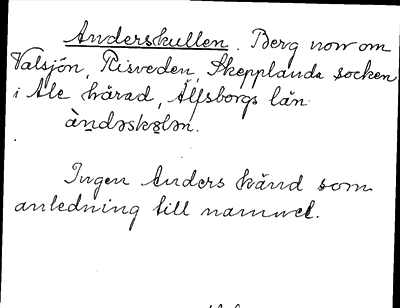 Anderskullen. Berg norr om
Valsjön, Risveden, Skepplanda socken
i Ale härad, Älfsborgs län
àndəskɵlən.
Ingen Anders känd som
anledning till namnet.